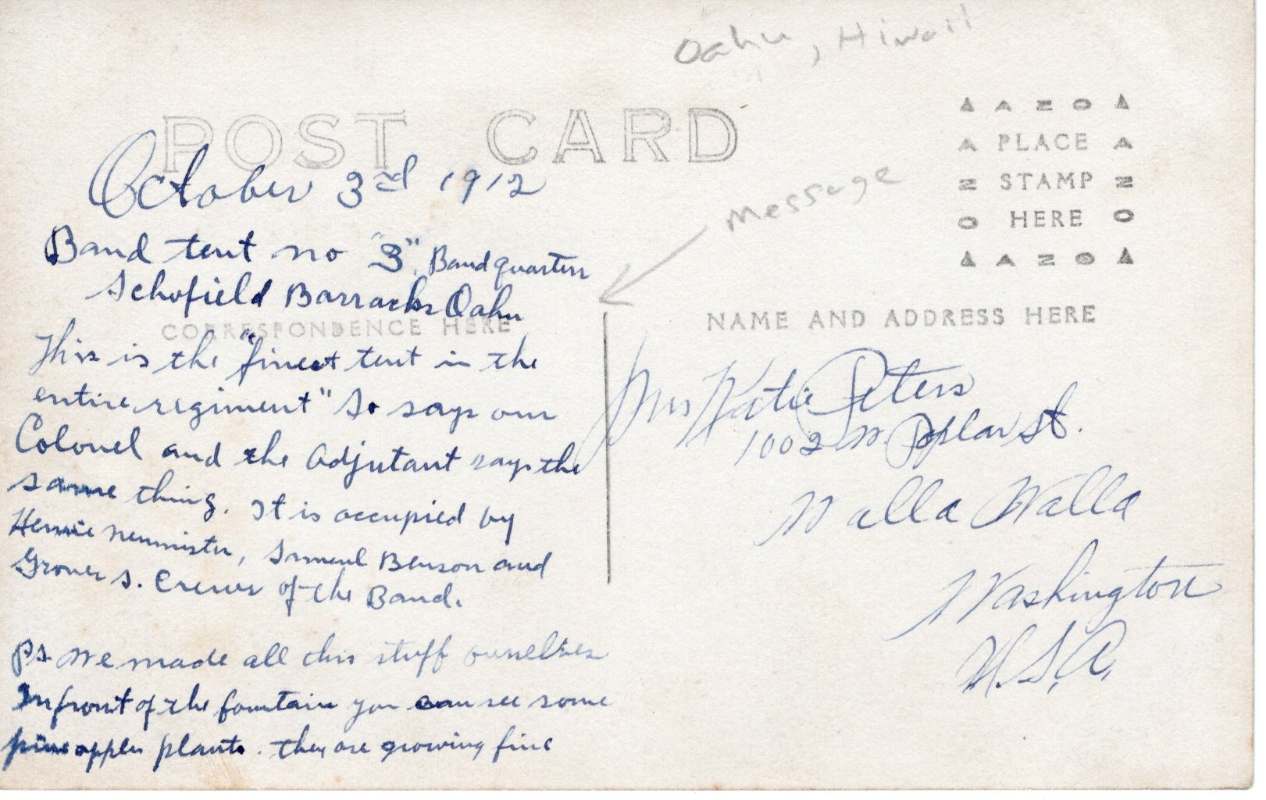 Oahu, Hiwaii
POST CARD
▲ A Z O ▲
A PLACE A
Z STAMP Z
O HERE O
▲ A Z O ▲
message
October 3rd 1912
Band tent no "3", Band quarters
Schofield Barracks Oahu
CORRESPONDENCE HERE
This is the "finest tent in the
entire regiment" So says our
Colonel and the Adjutant says the
same thing. It is occupied by
Neumister, Benson and
Grover S. Crews of the Band.
Ps we made all this stuff ourselves
In front of the fountain you can see some
pineapple plants. they are growing fine
NAME AND ADDRESS HERE
Mrs Katie Peters
1002 W Poplar St.
Walla Walla
Washington
U.S.A.